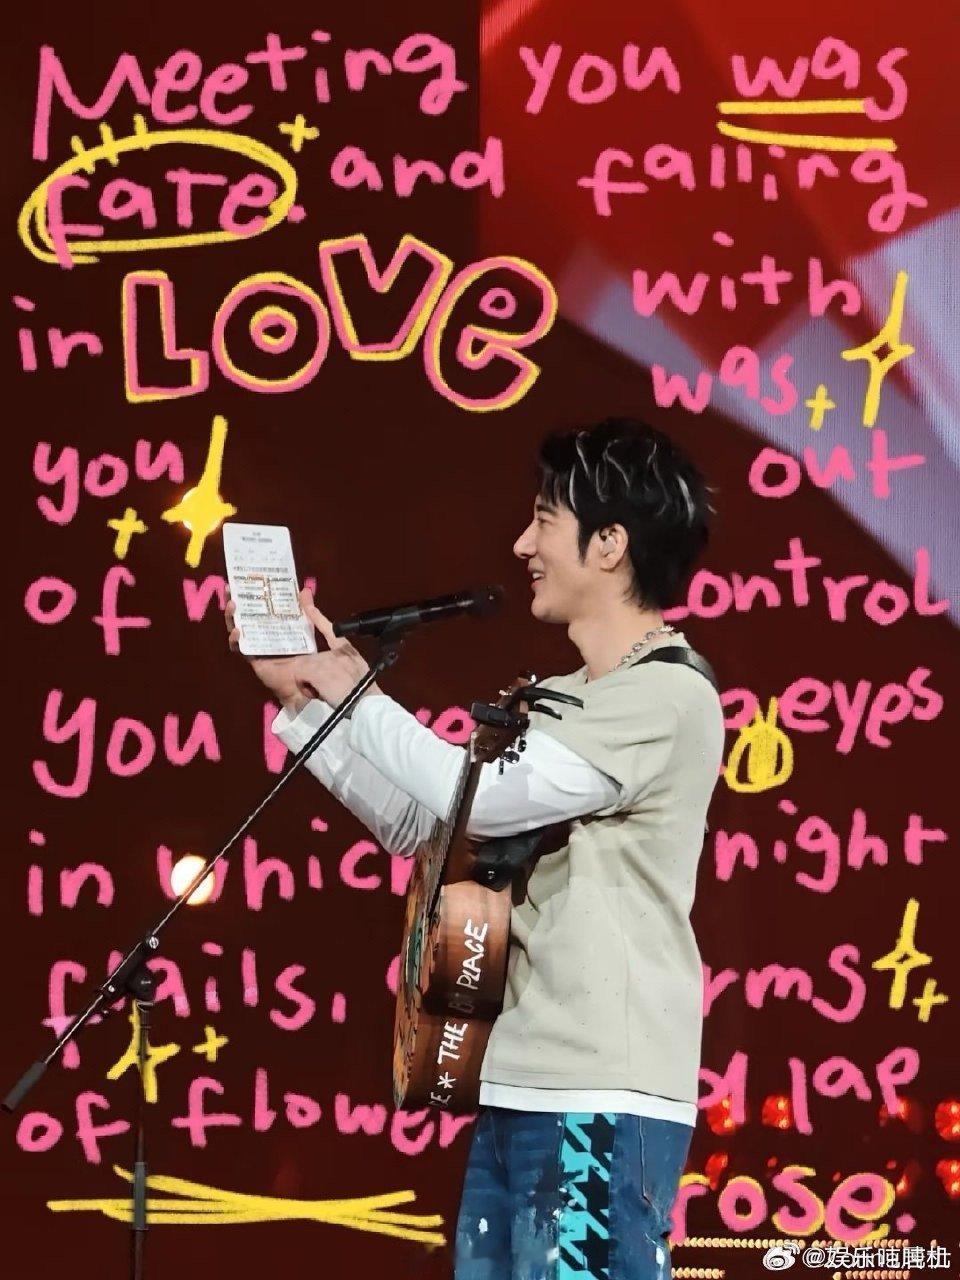 Meeting you was
fate. and falling
in LOVE with
you was
out
of my control
you eyes
in which night
flails, rms
of flower lap
rose.
THE PLACE
@娱乐吨吨机